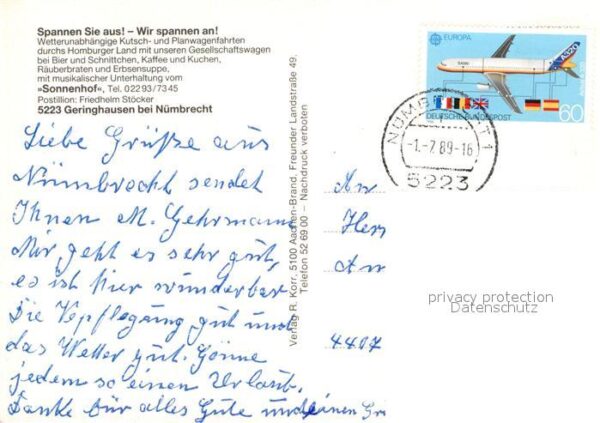 Spannen Sie aus! – Wir spannen an!
Wetterunabhängige Kutsch- und Planwagenfahrten
durchs Homburger Land mit unseren Gesellschaftswagen
bei Bier und Schnittchen, Kaffee und Kuchen,
Räuberbraten und Erbsensuppe,
mit musikalischer Unterhaltung vom
»Sonnenhof«, Tel. 02293/7345
Postillion: Friedhelm Stöcker
5223 Geringhausen bei Nümbrecht
Liebe Grüße aus
Nümbrecht sendet
Ihnen M. Gehrmann
Mir geht es sehr gut,
es ist hier wunderbar
Die Vepflegung gut und
das Wetter gut. Gönne
jedem so einen Urlaub.
Danke für alles Gute und einen Gr
Verlag R. Korr, 5100 Aachen-Brand, Freunder Landstraße 49,
Telefon 52 69 00 – Nachdruck verboten
EUROPA
A320
60
DEUTSCHE BUNDESPOST
NÜMB T 1
-1.-7.89-16
5223
An
Herr
An
4407
privacy protection
Datenschutz